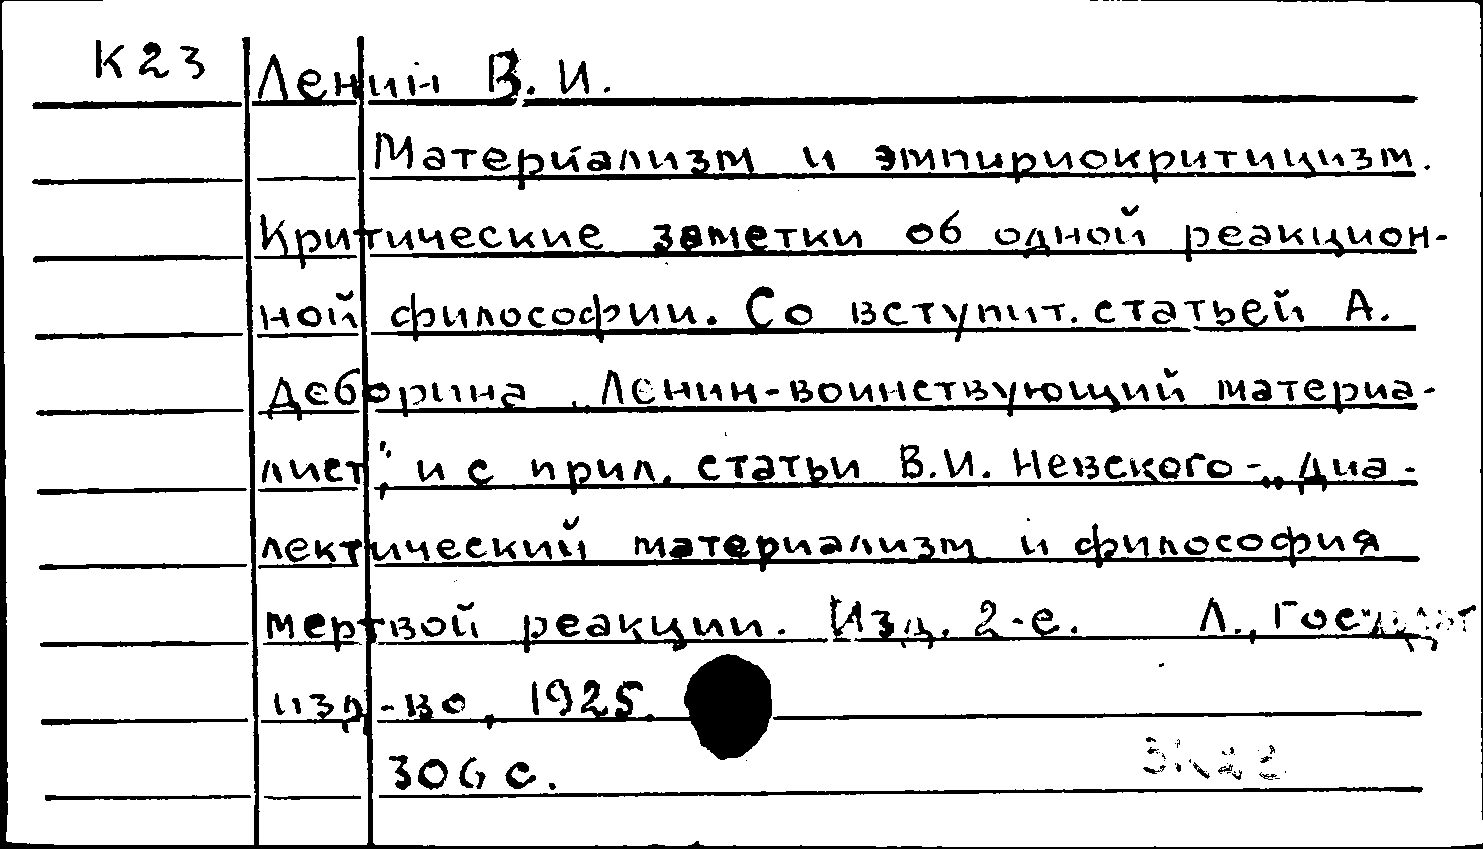 К23 Ленин В. И.
Материализм и эмпириокритицизм.
Критические заметки об одной реакцион-
ной философии. Со вступит. статьей А.
Деборина „Ленин-воинствующий материа-
лист", и с прил. статьи В.И. Невского-„Диа-
лектический материализм и философия
мертвой реакции. Изд. 2-е. Л.,
изд-во, 1925.
306 с.